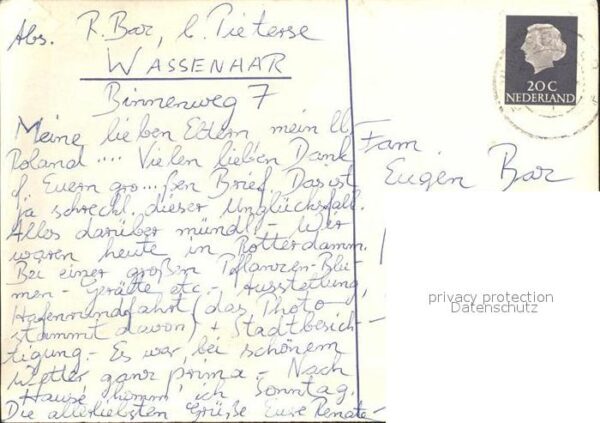 Abs. R. Bar, b. Pieterse
WASSENAAR
Binnenweg 7
Meine lieben Eltern mein ll
Roland .... Vielen lieben Dank
f. Euern gro...ßen Brief. Das ist
ja schreckl. dieser Unglücksfall.
Alles darüber mündl. - Wir
waren heute in Rotterdamm.
Bei einer großen Pflanzen-Blu-
men - Geräte etc. - Ausstellung,
Hafenrundfahrt (das Photo
stammt davon) + Stadtbesich-
tigung. - Es war, bei schönem
Wetter ganz prima - Nach
Hause komm' ich Sonntag.
Die allerliebsten Grüße Eure Renate -
Fam.
Eugen Bar
20C
NEDERLAND
privacy protection
Datenschutz